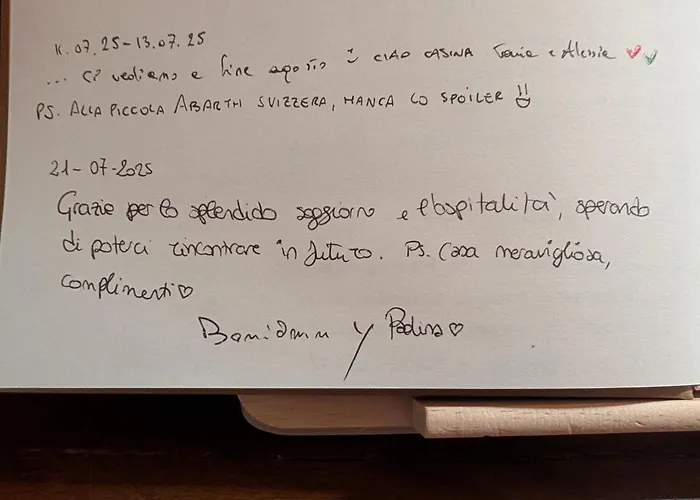 11.07.25-13.07.25
... Ci vediamo a fine agosto CIAO CASINA e Alessia
PS. ALLA PICCOLA ABARTH SVIZZERA, MANCA LO SPOILER
21-07-2025
Grazie per lo splendido soggiorno e l'ospitalità, sperando
di poterci rincontrare in futuro. Ps. Casa meravigliosa,
complimenti ♡
y ♡